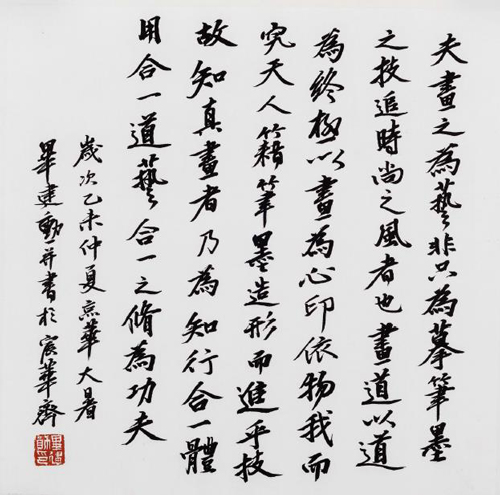 夫畫之為藝非只為摹筆墨
之技追時尚之風者也畫道以道
為終極以畫為心印依物我而
究天人籍筆墨造形而進乎技
故知真畫者乃為知行合一體
用合一道藝合一之脩為功夫
歲次乙未仲夏京華大暑
畢建勛并書於宸華齋